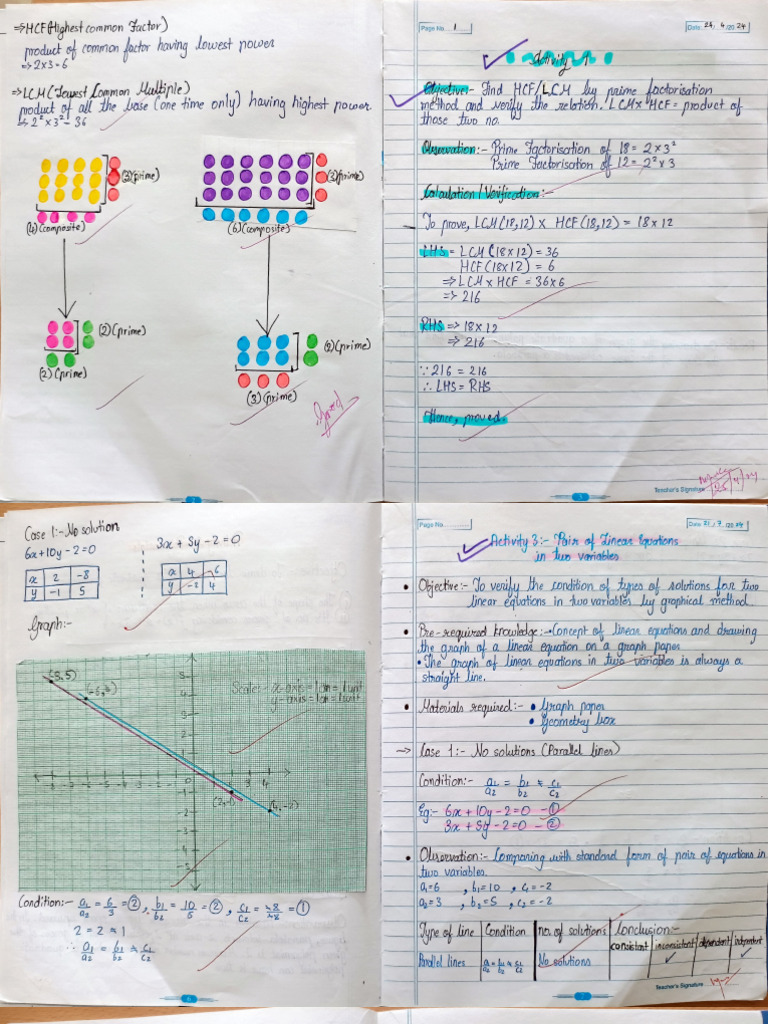 ⇒ HCF (Highest common Factor)
product of common factor having lowest power
⇒ 2×3=6
⇒ LCM (Lowest Common Multiple)
product of all the base (one time only) having highest power.
⇒ 2²×3² = 36
(3)(prime)
(3)(prime)
(4)(composite)
(6)(composite)
(2)(prime)
(2)(prime)
(2)(prime)
(3)(prime)
Good
2
Page No. 1
Date: 25/4/2024
Activity 1
Objective:- Find HCF/LCM by prime factorisation
method and verify the relation. LCM × HCF = product of
those two no.
Observation:- Prime Factorisation of 18 = 2×3²
Prime Factorisation of 12 = 2²×3
Calculation/Verification:-
To prove, LCM(18,12) × HCF(18,12) = 18×12
LHS = LCM (18×12) = 36
HCF (18×12) = 6
⇒ LCM × HCF = 36×6
⇒ 216
RHS ⇒ 18×12
⇒ 216
∵ 216 = 216
∴ LHS = RHS
Hence, proved.
Teacher's Signature
3
Case 1:- No solution
6x+10y-2=0
3x+5y-2=0
x 2 -8
y -1 5
x 4 -6
y -2 4
Graph:-
(-8,5)
Scale:- x-axis = 1cm = 1unit
y-axis = 1cm = 1unit
(2,-1)
(4,-2)
Condition:- a₁/a₂ = 6/3 = ②, b₁/b₂ = 10/5 = ②, c₁/c₂ = -2/-2 = ①
2 = 2 ≠ 1
∴ a₁/a₂ = b₁/b₂ ≠ c₁/c₂
6
Page No.
Date 21/7/2024
Activity 3:- Pair of Linear Equations
in two variables
• Objective:- To verify the condition of types of solutions for two
linear equations in two variables by graphical method.
• Pre-required knowledge:- • Concept of linear equations and drawing
the graph of a linear equation on a graph paper
• The graph of linear equations in two variables is always a
straight line.
• Materials required:- • Graph paper
• Geometry box
→ Case 1:- No solutions (Parallel lines)
Condition:- a₁/a₂ = b₁/b₂ ≠ c₁/c₂
Eg:- 6x + 10y - 2 = 0 - ①
3x + 5y - 2 = 0 - ②
• Observation:- Comparing with standard form of pair of equations in
two variables.
a₁=6 , b₁=10 , c₁=-2
a₂=3 , b₂=5 , c₂=-2
Type of line Condition no. of solutions Conclusion:-
consistent inconsistent dependent independent
Parallel lines a₁/a₂ = b₁/b₂ ≠ c₁/c₂ No solutions ✓ ✓
Teacher's Signature
7